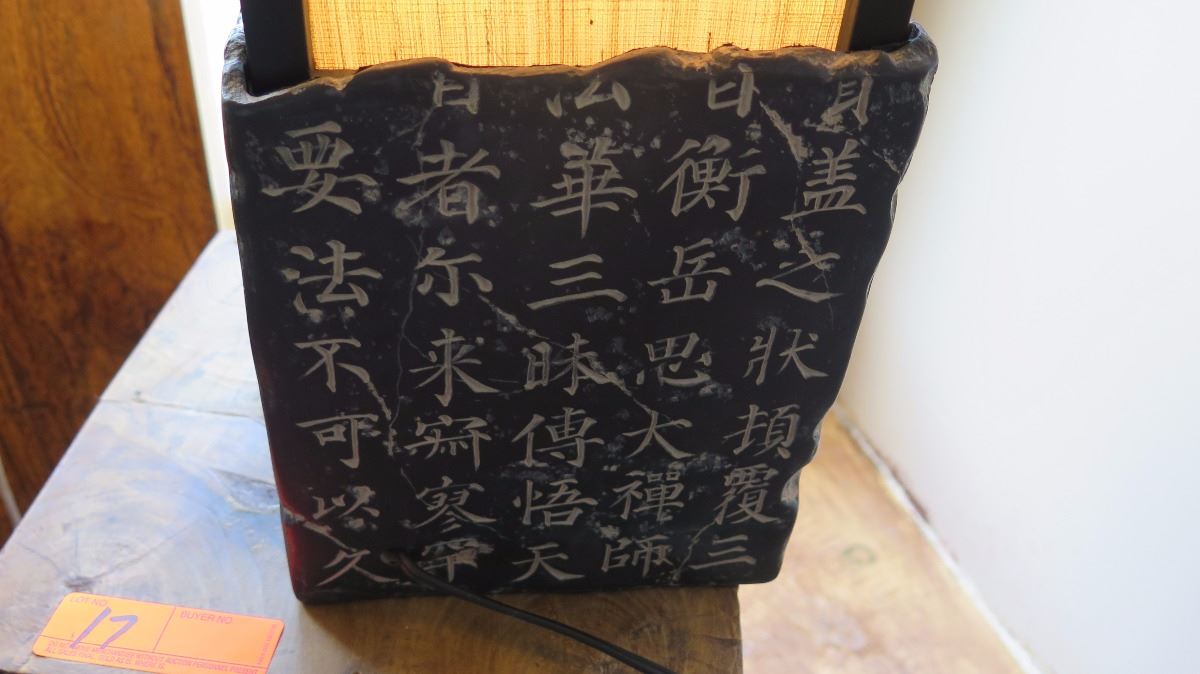 盖之狀頓覆三
衡岳思大禪師
華三昧傳悟天
者尔来寂寥罕
要法不可以久
LOT NO.
17
BUYER NO.